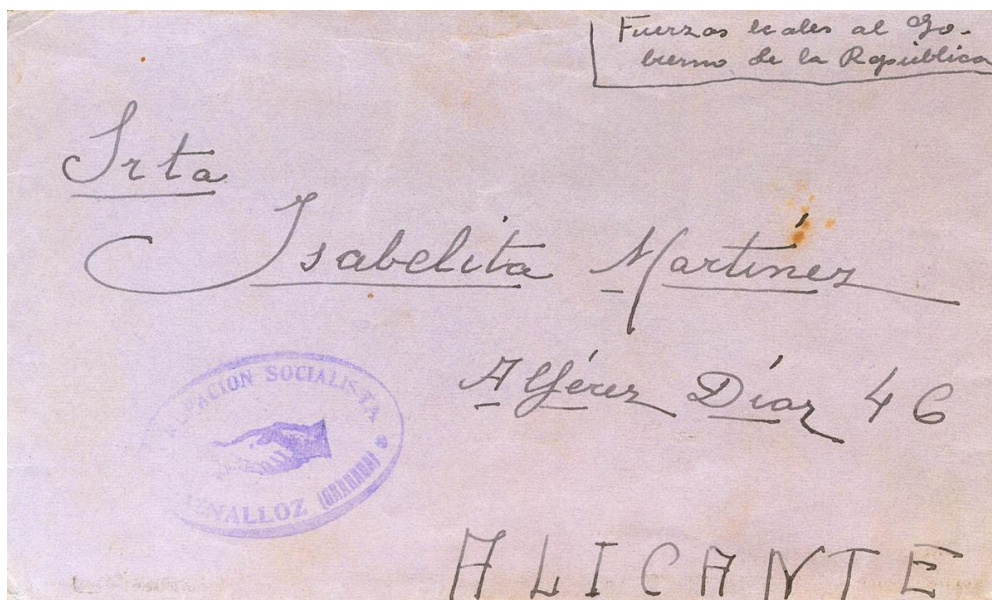 Fuerzas leales al Go-
bierno de la República
Srta
Isabelita Martínez
Alférez Díaz 46
ALICANTE
UPACION SOCIALISTA
ENALLOZ (GRANADA)